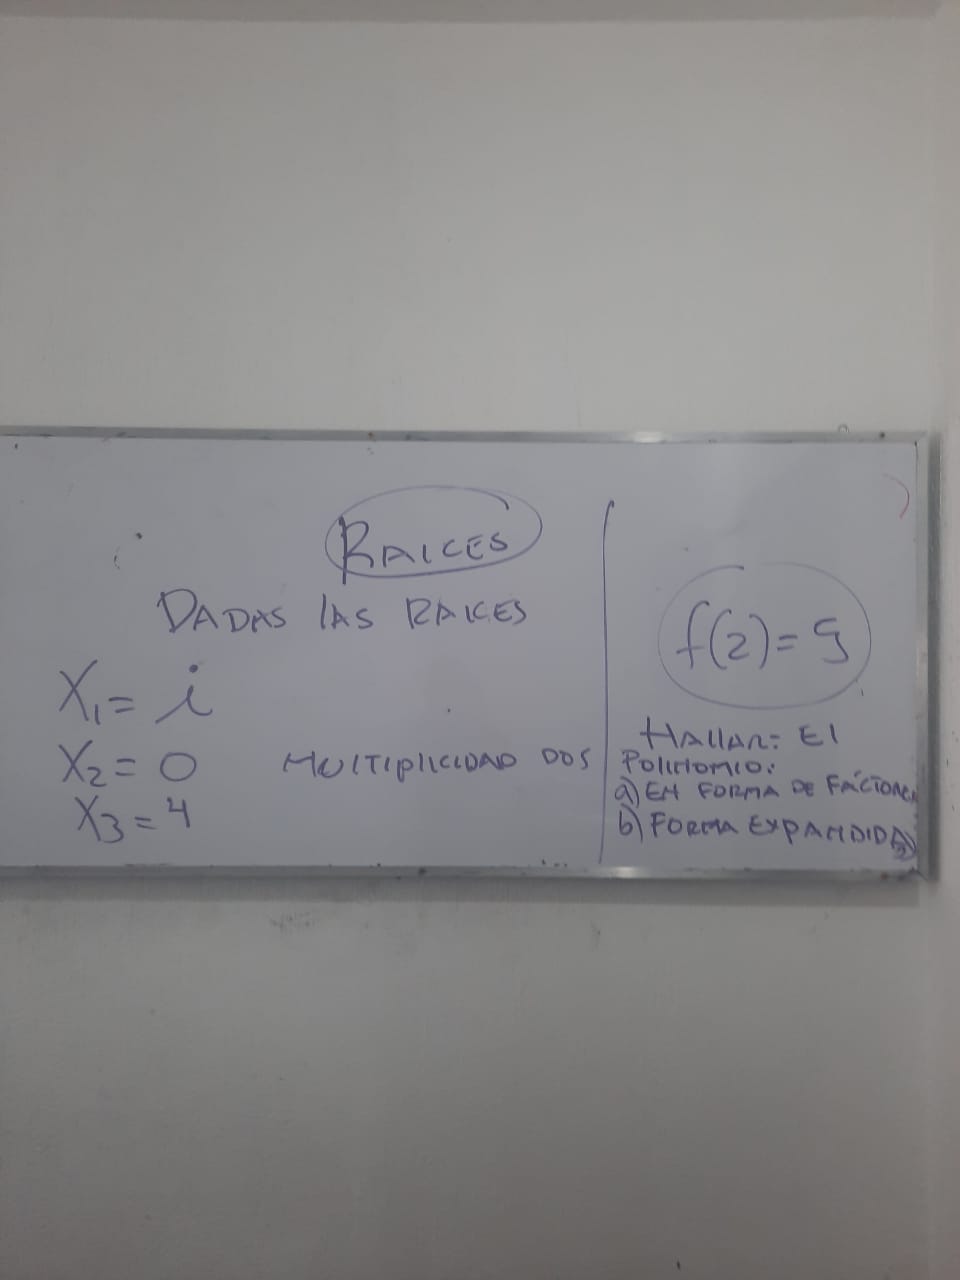 RAICES
DADAS LAS RAICES
X₁ = i
X₂ = 0 MULTIPLICIDAD DOS
X₃ = 4
f(2) = 5
HALLAR: El
POLINOMIO:
a) EN FORMA DE FACTORES
b) FORMA EXPANDIDA